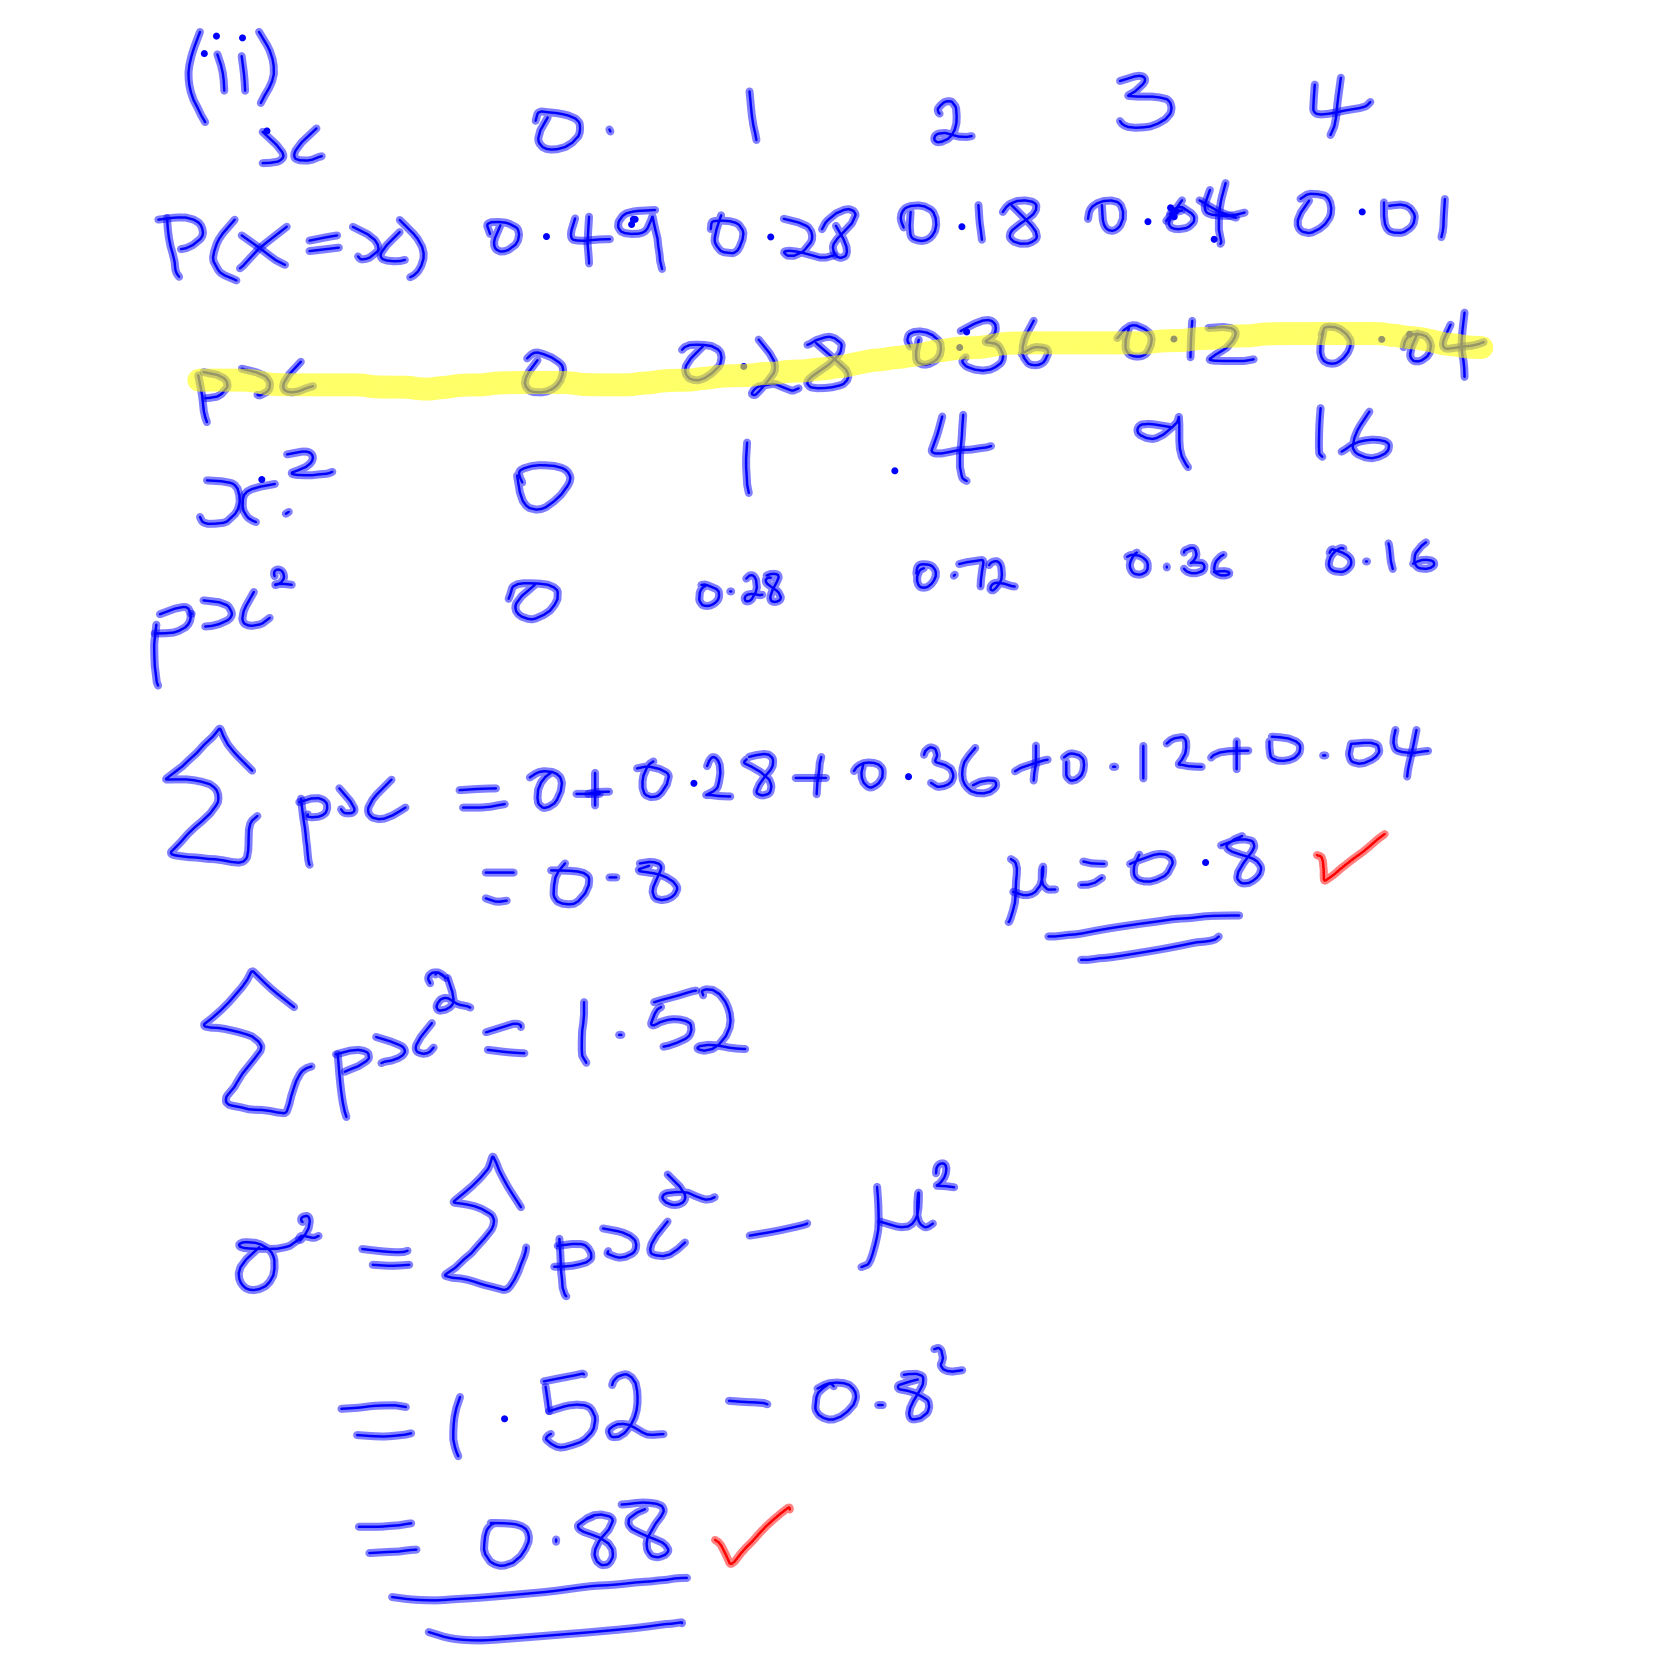 (ii)
x 0 1 2 3 4
P(X=x) 0.49 0.28 0.18 0.04 0.01
px 0 0.28 0.36 0.12 0.04
x² 0 1 4 9 16
px² 0 0.28 0.72 0.36 0.16
∑px = 0+0.28+0.36+0.12+0.04
= 0.8 μ=0.8 ✓
∑px² = 1.52
σ² = ∑px² − μ²
= 1.52 − 0.8²
= 0.88 ✓